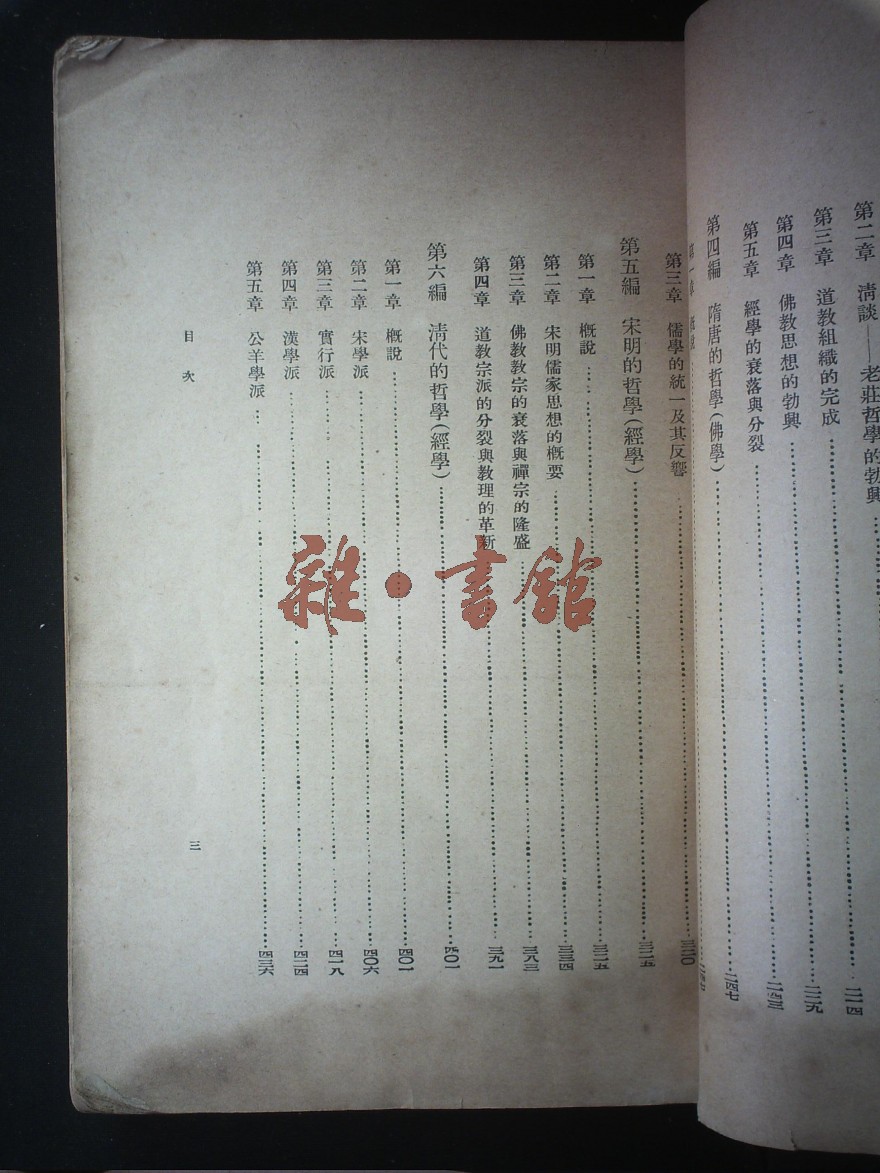 第二章 清談——老莊哲學的勃興……二一四
第三章 道教組織的完成……二二九
第四章 佛教思想的勃興……二三三
第五章 經學的衰落與分裂……二四三
第四編 隋唐的哲學(佛學)……二四七
第一章 概說……二四七
第三章 儒學的統一及其反響……三二〇
第五編 宋明的哲學(經學)……三二五
第一章 概說……三二五
第二章 宋明儒家思想的概要……三三四
第三章 佛教教宗的衰落與禪宗的隆盛……三八三
第四章 道教宗派的分裂與教理的革新……三九一
第六編 清代的哲學(經學)……四〇一
第一章 概說……四〇一
第二章 宋學派……四〇六
第三章 實行派……四一八
第四章 漢學派……四二四
第五章 公羊學派……四三六
目次
三
雜·書館